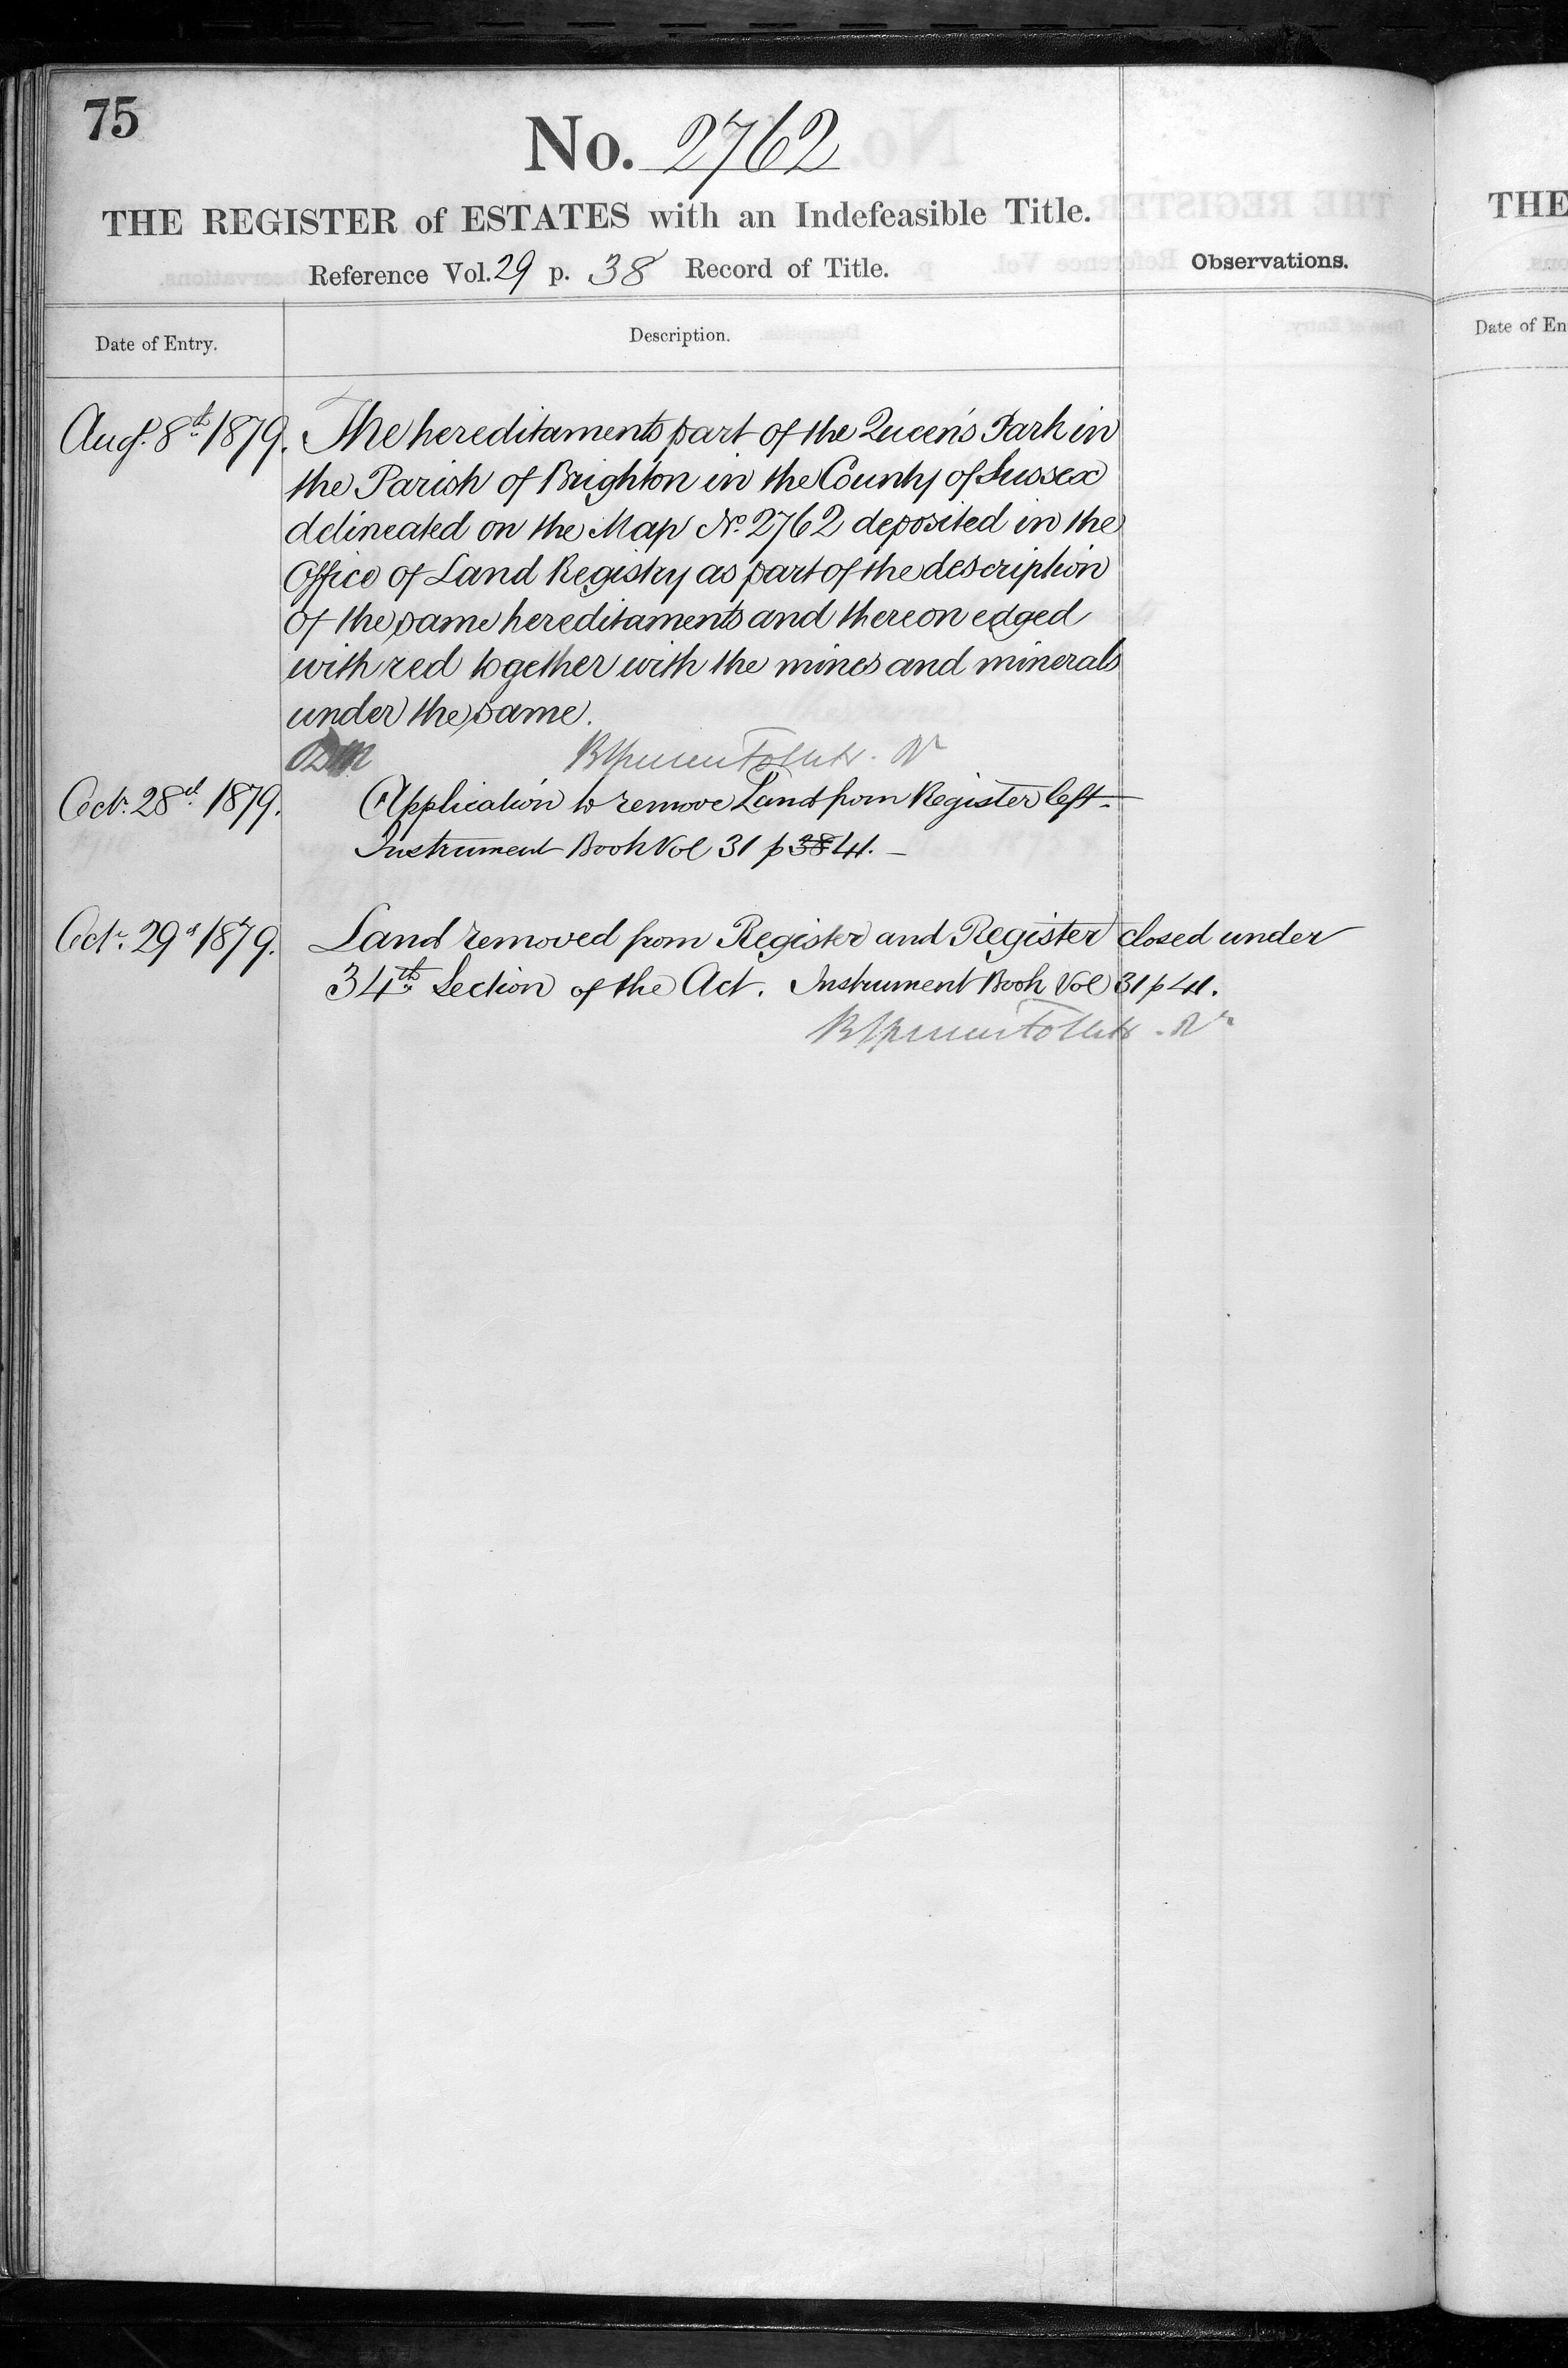 75
No. 2762
THE REGISTER of ESTATES with an Indefeasible Title.
Reference Vol. 29 p. 38 Record of Title.
Observations.
Date of Entry.
Description.
Aug. 8th 1879. The hereditaments part of the Queen's Park in
the Parish of Brighton in the County of Sussex
delineated on the Map No. 2762 deposited in the
Office of Land Registry as part of the description
of the same hereditaments and thereon edged
with red together with the mines and minerals
under the same.
Octr. 28th 1879. Application to remove Land from Register left -
Instrument Book Vol 31 p 38 41. -
Octr. 29th 1879. Land removed from Register and Register closed under
34th Section of the Act. Instrument Book Vol 31 p 41.
THE
Date of En